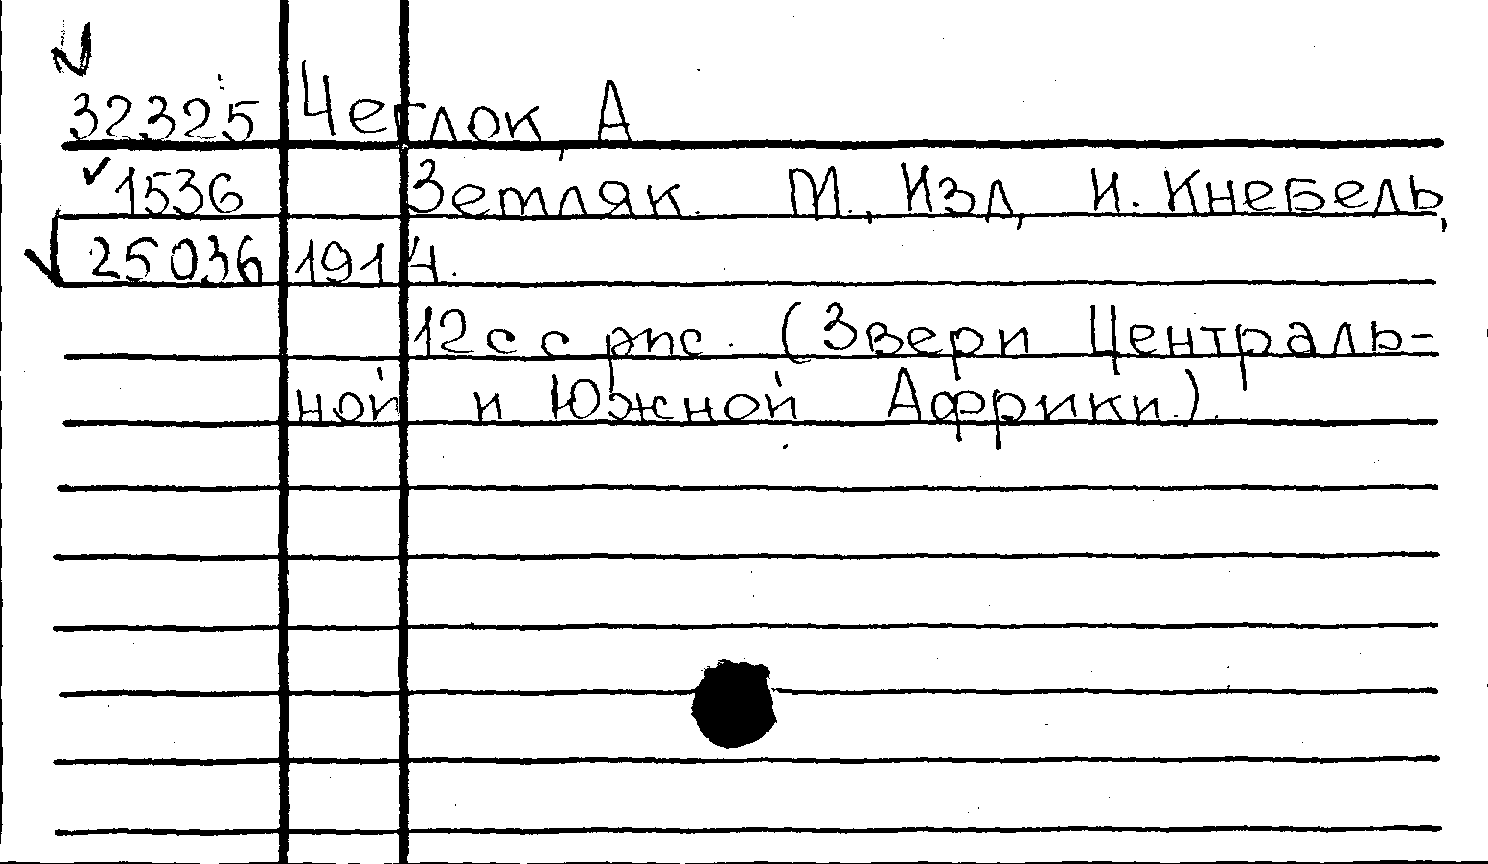 32325 Чеглок, А
1536 Земляк. М., Изд, И. Кнебель,
25036 1914.
12с с рис. (Звери Централь-
ной и Южной Африки.).